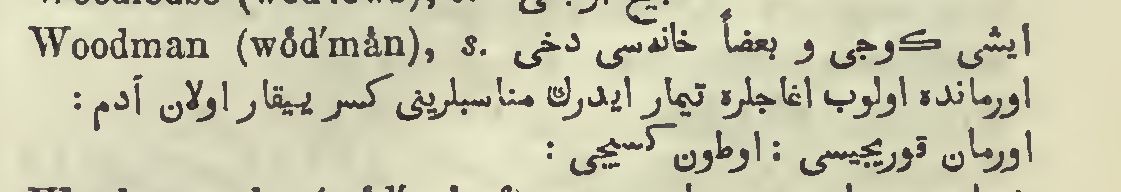 Woodman (wŏd′mån), s. ایشی كوجی و بعضاً خانه‌سی دخی
اورمانده اولوب اغاجلره تیمار ایدرك مناسبلرینی كسر ییقار اولان آدم :
اورمان قوریجیسی : اوطون كسیجی :